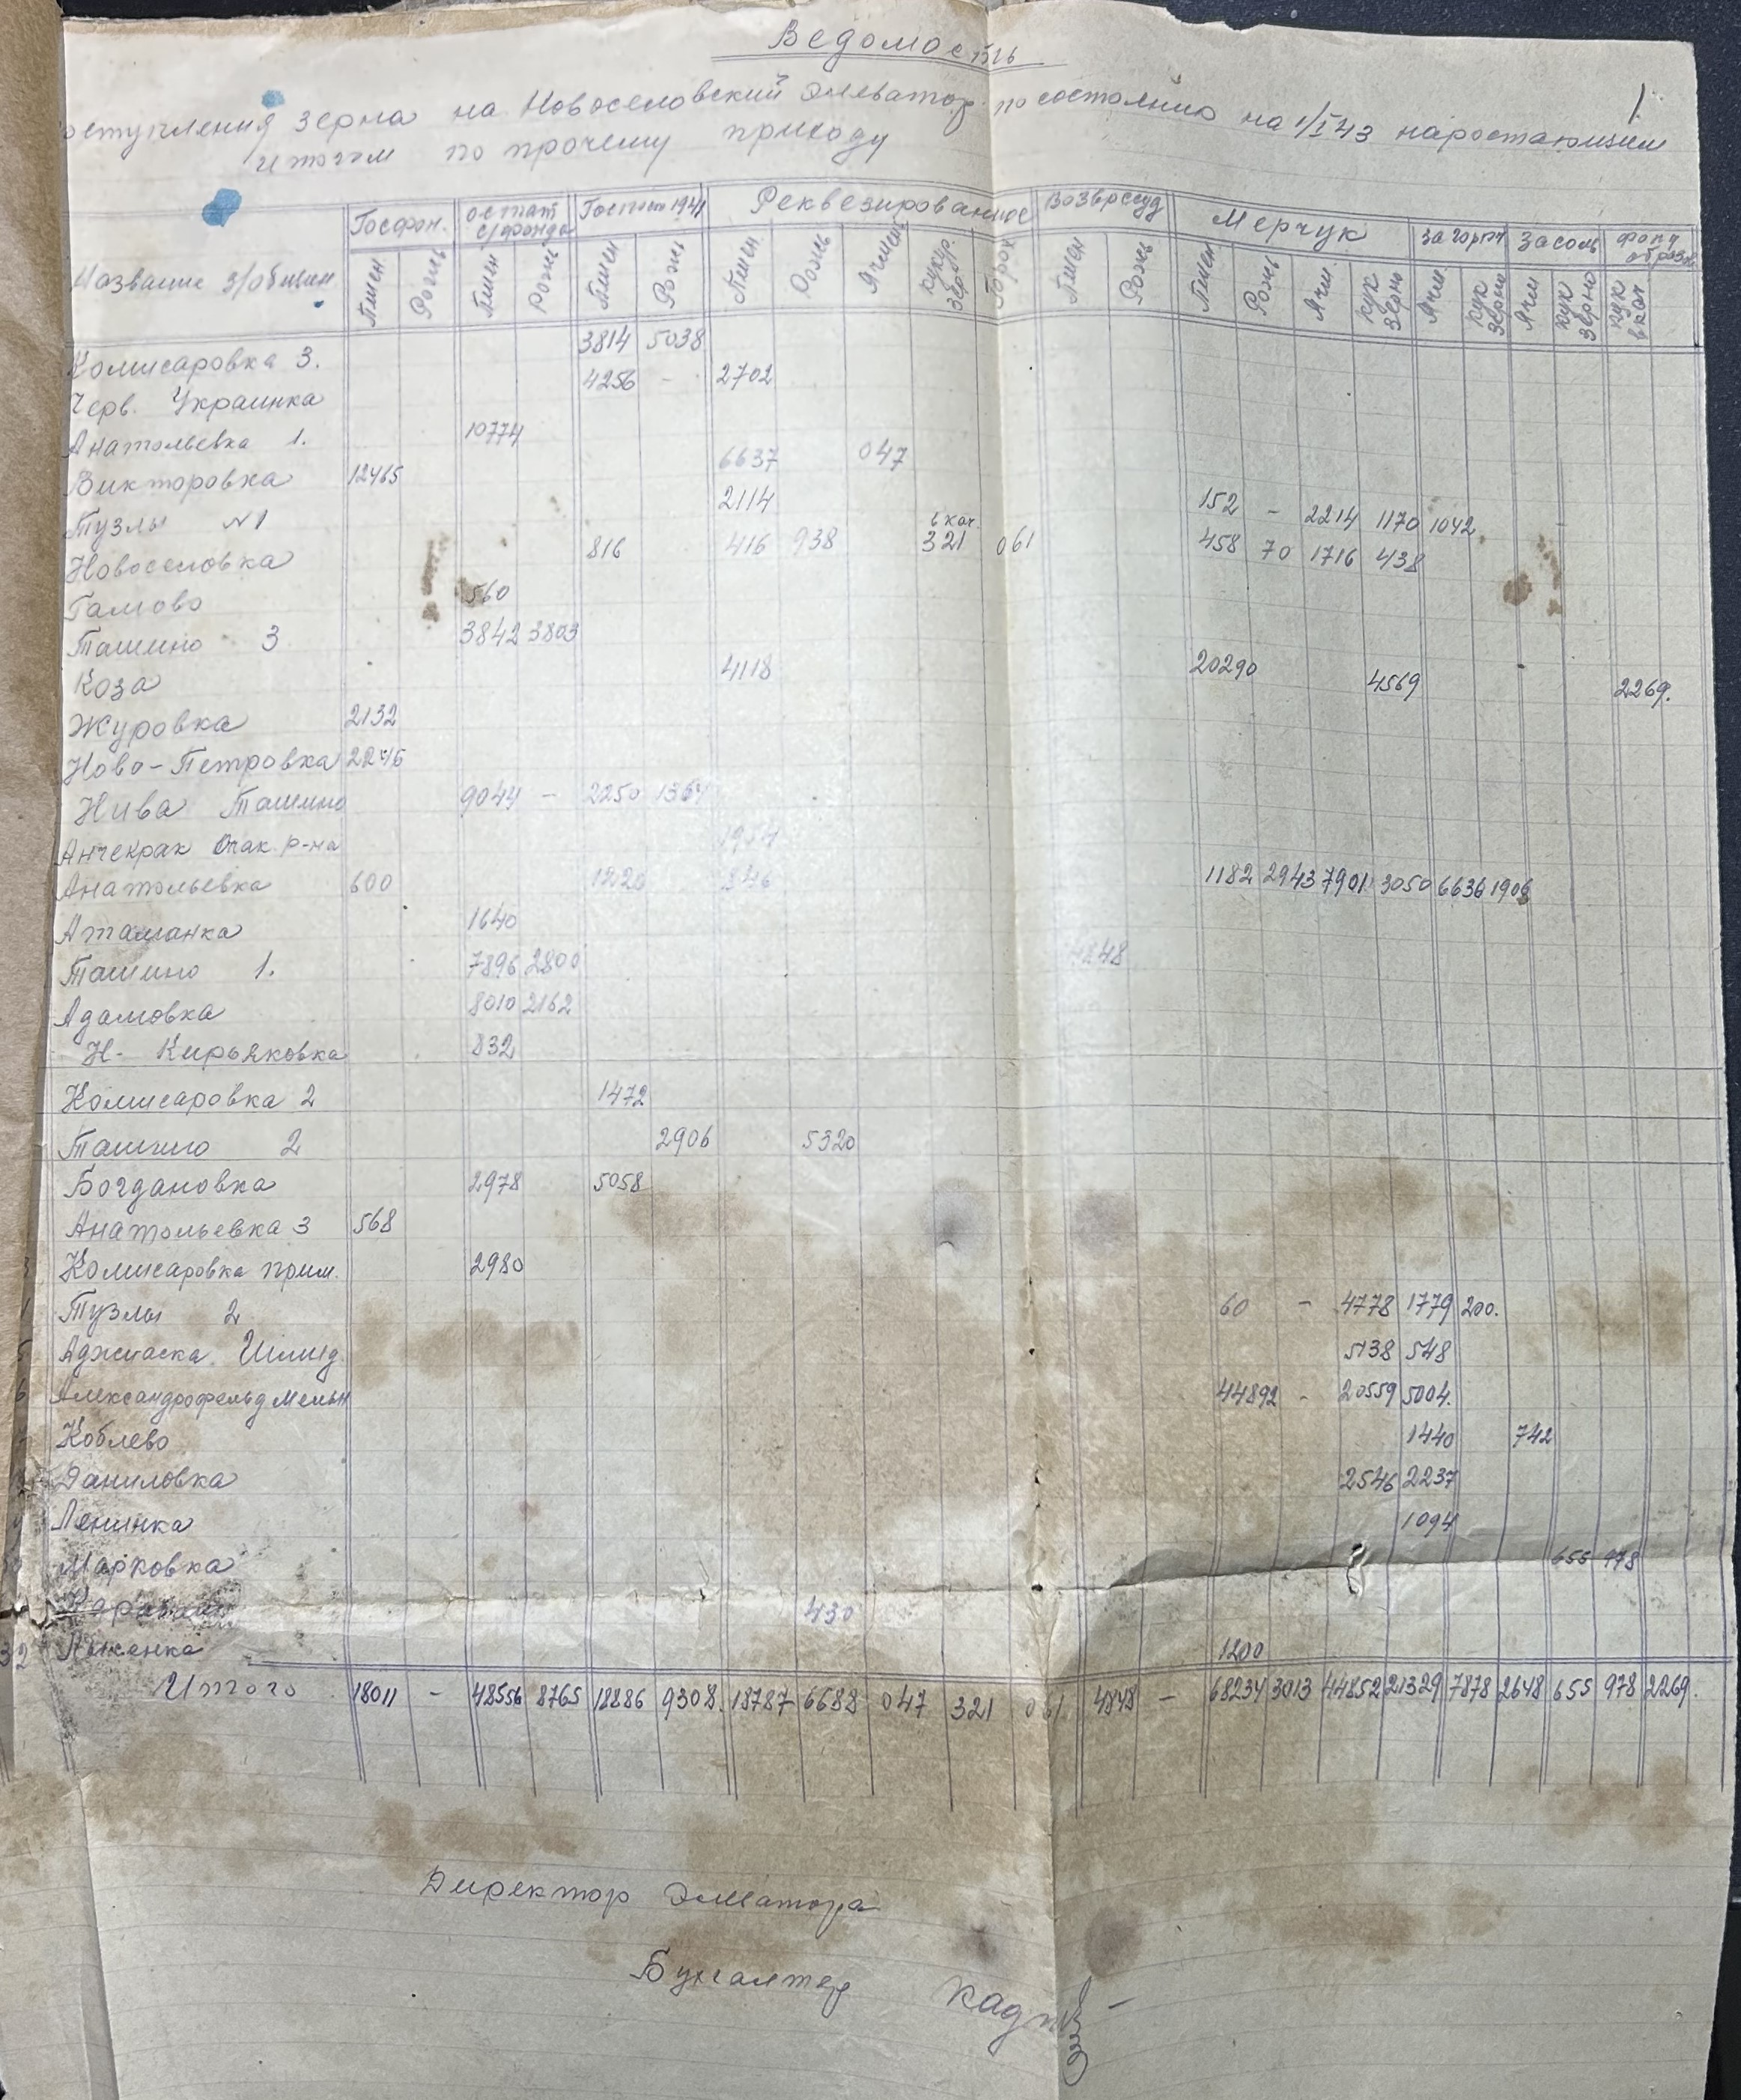 Ведомость
оступления зерна на Новоселовский элеватор по состоянию на 1/I 43 наростающим
итогом по прочему приходу
Название з/общин Госфон. остат с/фонда Госпост 1941 Реквезированное Возвр ссуд Мерчук за горюч за соль фонд
Пшен Рожь Пшен Рожь Пшен Рожь Пшен Рожь Ячмен кукур. зер. Горох Пшен Рожь Пшен Рожь Ячм. кук зерно Ячм кук зерно Ячм кук зерно кук в кач
Комисаровка 3. 3814 5038
Черв. Украинка 4256 - 2702
Анатольевка 1. 10774
Викторовка 12465 6637 047
Тузлы N1 2114 152 - 2214 1170 1042
Новоселовка 816 416 938 в кач. 321 061 458 70 1716 438
Гамово 560
Ташино 3 3842 3803
Коза 4118 20290 4569 2269.
Журовка 2132
Ново-Петровка 2246
Нива Ташино 9044 - 2250 1364
Анчекрак Очак. р-на 1954
Анатольевка 600 1220 846 1182 2943 7901 3050 6636 1906
Атаманка 1640
Ташино 1. 7896 2800 4848
Адамовка 8010 2162
Н- Кирьяковка 832
Комисаровка 2 1472
Ташино 2 2906 5320
Богдановка 2978 5058
Анатольевка 3 568
Комисаровка прим. 2980
Тузлы 2 60 - 4778 1779 200.
Аджиаска Шмид. 5138 548
6 Александрофельд Мельн 44892 - 20559 5004.
Коблево 1440 742
Даниловка 2546 2237
Ленинка 1094
Марковка 655 978
430
32 1200
Итого 18011 - 48556 8765 18886 9308. 18787 6688 047 321 061. 4848 - 68234 3013 44852 21329 7878 2648 655 978 2269.
Директор Элеватора
Бухгалтер